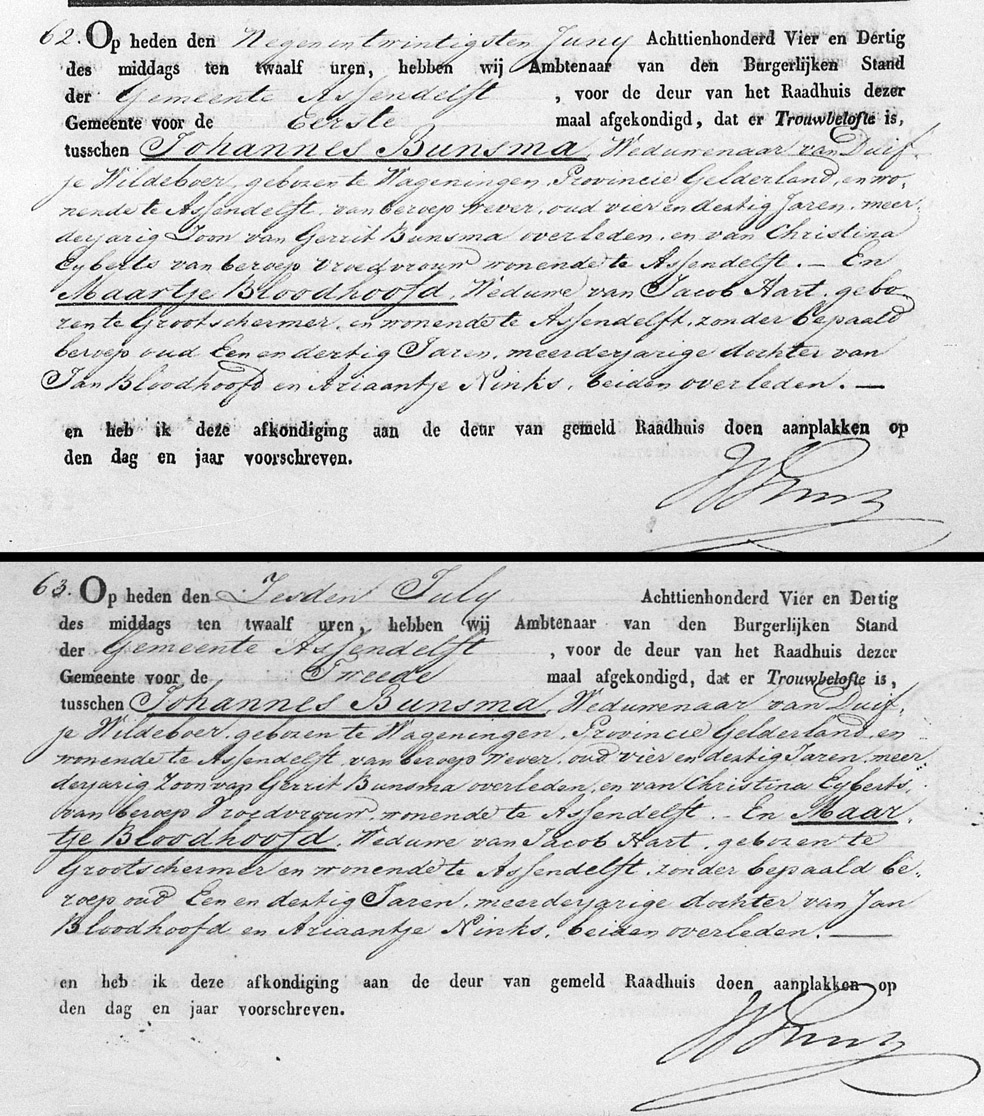 62. Op heden den Negenentwintigsten Juny Achttienhonderd Vier en Dertig
des middags ten twaalf uren, hebben wij Ambtenaar van den Burgerlijken Stand
der Gemeente Assendelft , voor de deur van het Raadhuis dezer
Gemeente voor de Eerste maal afgekondigd, dat er Trouwbelofte is,
tusschen Johannes Bunsma, Weduwenaar van Duif-
je Wildeboer, geboren te Wageningen, Provincie Gelderland, en wo-
nende te Assendelft, van beroep wever, oud vier en dertig Jaren, meer-
derjarig Zoon van Gerrit Bunsma overleden, en van Christina
Eyberts van beroep vroedvrouw wonende te Assendelft. — En
Maartje Bloodhoofd, Weduwe van Jacob Hart, gebo-
ren te Grootschermer, en wonende te Assendelft, zonder bepaald
beroep oud Een en dertig Jaren, meerderjarige dochter van
Jan Bloodhoofd en Ariaantje Ninks, beiden overleden. —
en heb ik deze afkondiging aan de deur van gemeld Raadhuis doen aanplakken op
den dag en jaar voorschreven.
63. Op heden den Zesden July Achttienhonderd Vier en Dertig
des middags ten twaalf uren, hebben wij Ambtenaar van den Burgerlijken Stand
der Gemeente Assendelft , voor de deur van het Raadhuis dezer
Gemeente voor de Tweede maal afgekondigd, dat er Trouwbelofte is,
tusschen Johannes Bunsma, Weduwenaar van Duif-
je Wildeboer, geboren te Wageningen, Provincie Gelderland, en
wonende te Assendelft, van beroep wever, oud vier en dertig Jaren, meer-
derjarig Zoon van Gerrit Bunsma overleden, en van Christina Eyberts,
van beroep Vroedvrouw, wonende te Assendelft. — En Maar-
tje Bloodhoofd, Weduwe van Jacob Hart, geboren te
Grootschermer en wonende te Assendelft, zonder bepaald be-
roep oud Een en dertig Jaren, meerderjarige dochter van Jan
Bloodhoofd en Ariaantje Ninks, beiden overleden. —
en heb ik deze afkondiging aan de deur van gemeld Raadhuis doen aanplakken op
den dag en jaar voorschreven.